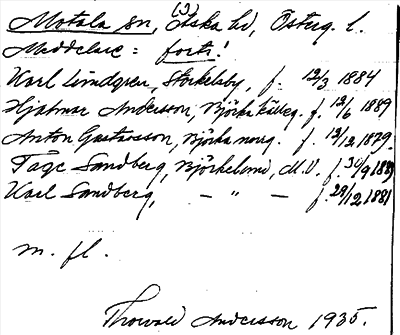 Motala sn, (J) Aska hd, Österg. l.
Meddelare: forts!
Karl Lindgren, Storkelsby, f. 12/3 1884
Hjalmar Andersson, Björka källeg. f. 12/6 1889
Anton Gustavsson, Björka norrg. f. 12/12 1879.
Tage Sandberg, Björkelund, M.V. f. 30/9 188
Karl Sandberg, — " — f. 28/12 1881
m. fl.
Thorvald Andersson 1935.